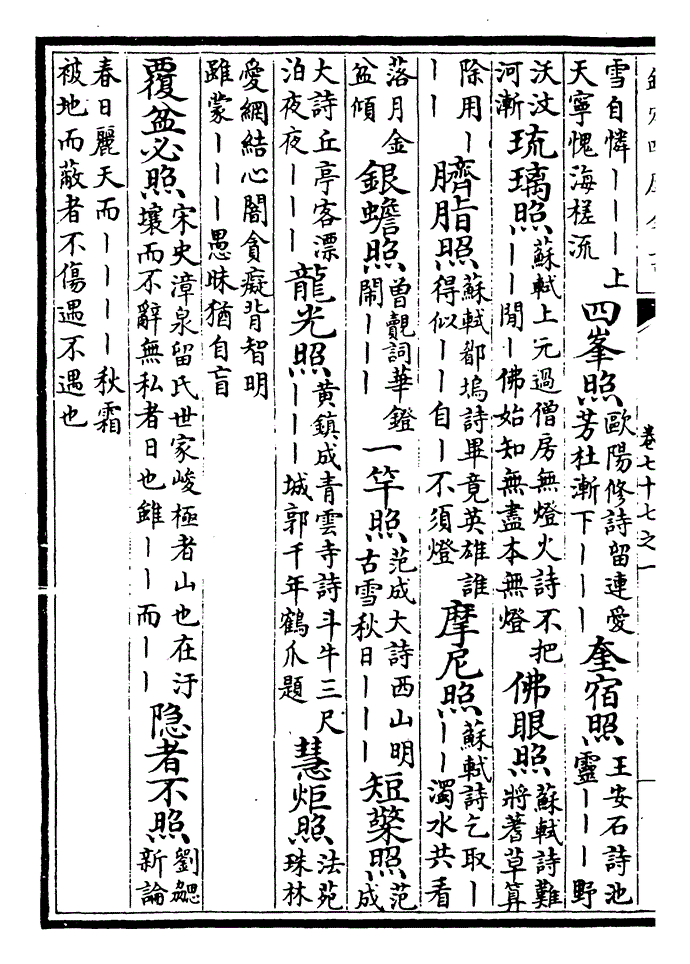 卷七十七之一
雪自憐丨丨丨上天寧愧海槎流 四峯照 歐陽修詩留連愛芳杜漸下丨丨丨 奎宿照 王安石詩池靈丨丨丨野
沃汶河漸 琉璃照 蘇軾上元過僧房無燈火詩不把丨丨閒丨佛始知無盡本無燈 佛眼照 蘇軾詩難將蓍草算
除用丨丨丨 臍脂照 蘇軾郿塢詩畢竟英雄誰得似丨丨自丨不須燈 摩尼照 蘇軾詩乞取丨丨丨濁水共看
落月金盆傾 銀蟾照 曾覿詞華鐙鬧丨丨丨 一竿照 范成大詩西山明古雪秋日丨丨丨 短檠照 范成
大詩丘亭客漂泊夜夜丨丨丨 龍光照 黃鎮成青雲寺詩斗牛三尺丨丨丨城郭千年鶴爪題 慧炬照 法苑珠林
愛網結心闇貪癡背智明雖蒙丨丨丨愚昧猶自盲
覆盆必照 宋史漳泉留氏世家峻極者山也在汙壤而不辭無私者日也雖丨丨而丨丨 隠者不照 劉勰新論
春日麗天而丨丨丨丨秋霜被地而蔽者不傷遇不遇也